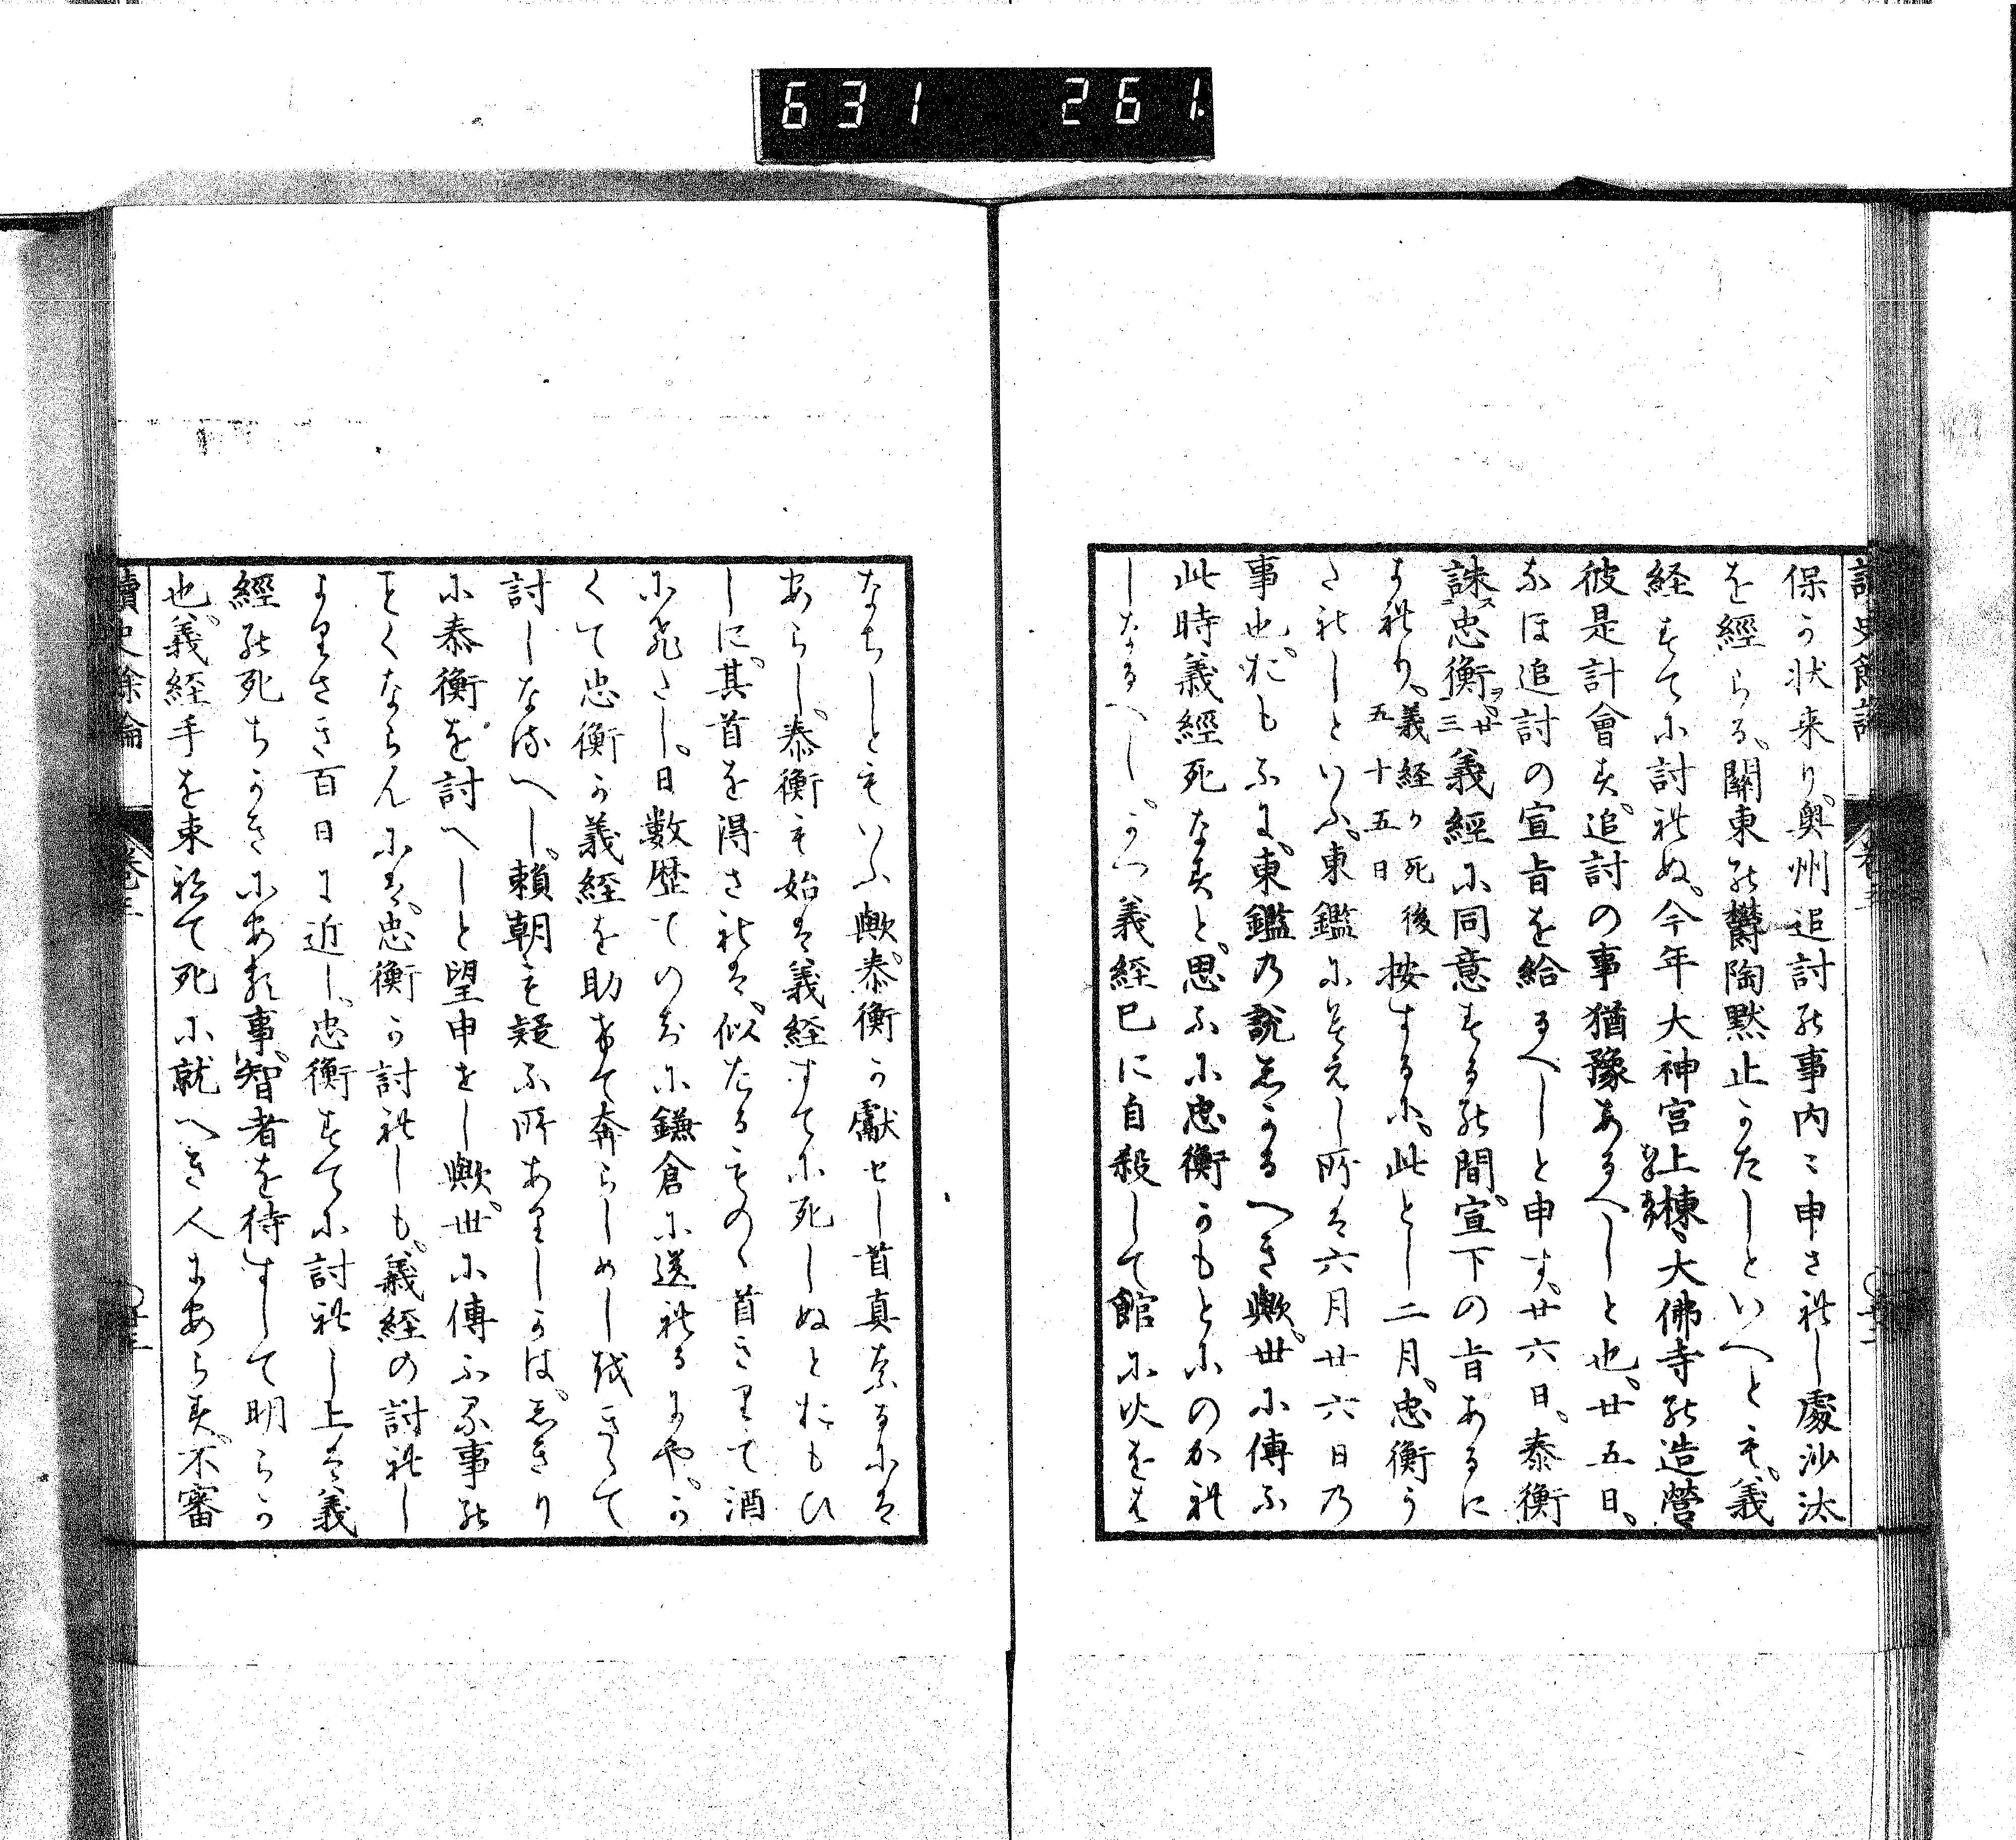 631 261
保か状来り奥州追討の事内〻申されし處沙汰
を經らる、關東の欝陶黙止かたしといへとも、義
経すてに討れぬ、今年大神宮上棟、大佛寺の造營
彼是計會す、追討の事猶豫あるへしと也、廿五日、
なほ追討の宣旨を給るへしと申す、廿六日、泰衡
誅ス忠衡ヲ、廿三義經に同意するの間、宣下の旨あるに
よれり、義経か死後五十五日 按するに、此とし二月、忠衡う
たれしといふ、東鑑にみえし所は六月廿六日乃
事也、おもふに、東鑑乃説しかるへき歟、世に傳ふ
此時義經死なすと、思ふに忠衡かもとにのかれ
しなるへし、かつ義経已に自殺して館に火をは
なちしともいふ歟、泰衡か獻せし首真なるには
あらし、泰衡も始は義経すてに死しぬとおもひ
しに、其首を得されは、似たるものゝ首きりて酒
にひたし、日数歴てのちに鎌倉に送れるにや、か
くて忠衡か義経を助けて奔らしめしをきゝて
討しなるへし、頼朝も疑ふ所ありしかは、しきり
に泰衡を討へしと望申せし歟、世に傳ふる事の
ことくならんには、忠衡か討れしも、義経の討れし
よりさき百日に近し、忠衡すてに討れし上は義
經の死ちかきにある事、智者を待すして明らか
也、義経手を束ねて死に就へき人にあらす、不審
讀史餘論 巻三